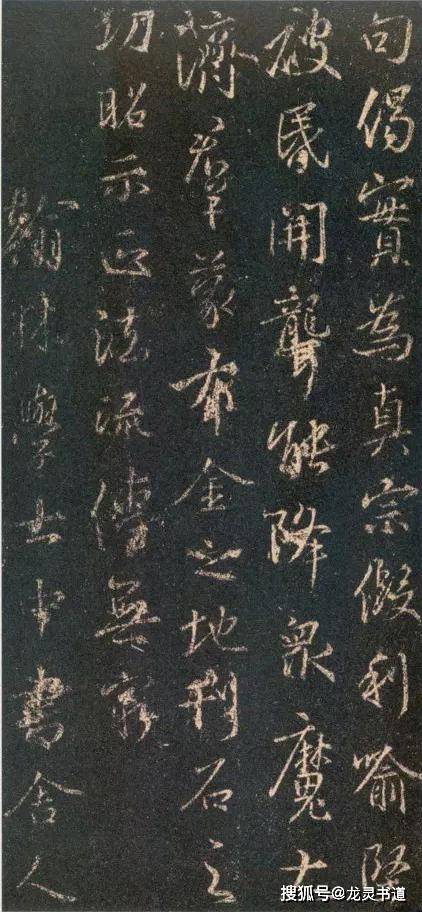 句偈實為真宗假利喻堅
破昏開聾能降眾魔大
濟群蒙布金之地刊石之
功昭示正法流傳無窮
翰林學士中書舍人
搜狐号@龙灵书道